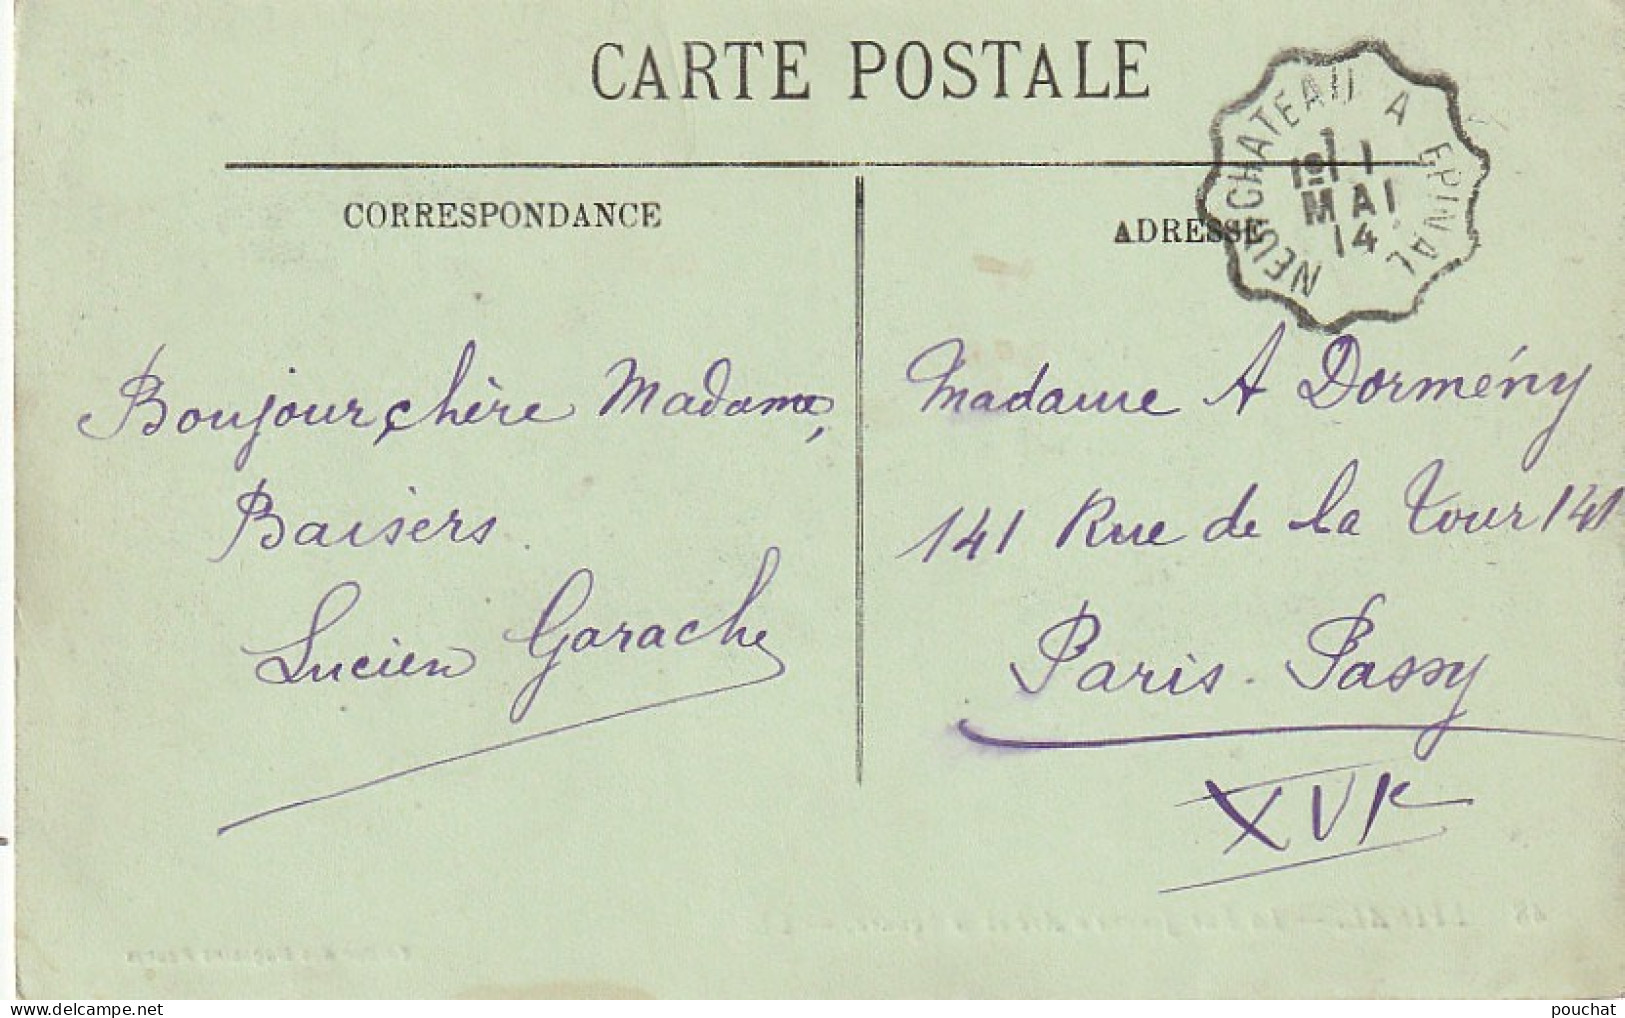 CARTE POSTALE
NEUFCHATEAU A EPINAL
MAI
14
CORRESPONDANCE
ADRESSE
Bonjour chère Madame,
Baisers.
Lucien Garache
Madame A Dormény
141 Rue de la Tour 141
Paris. Passy
XVI
pouchat